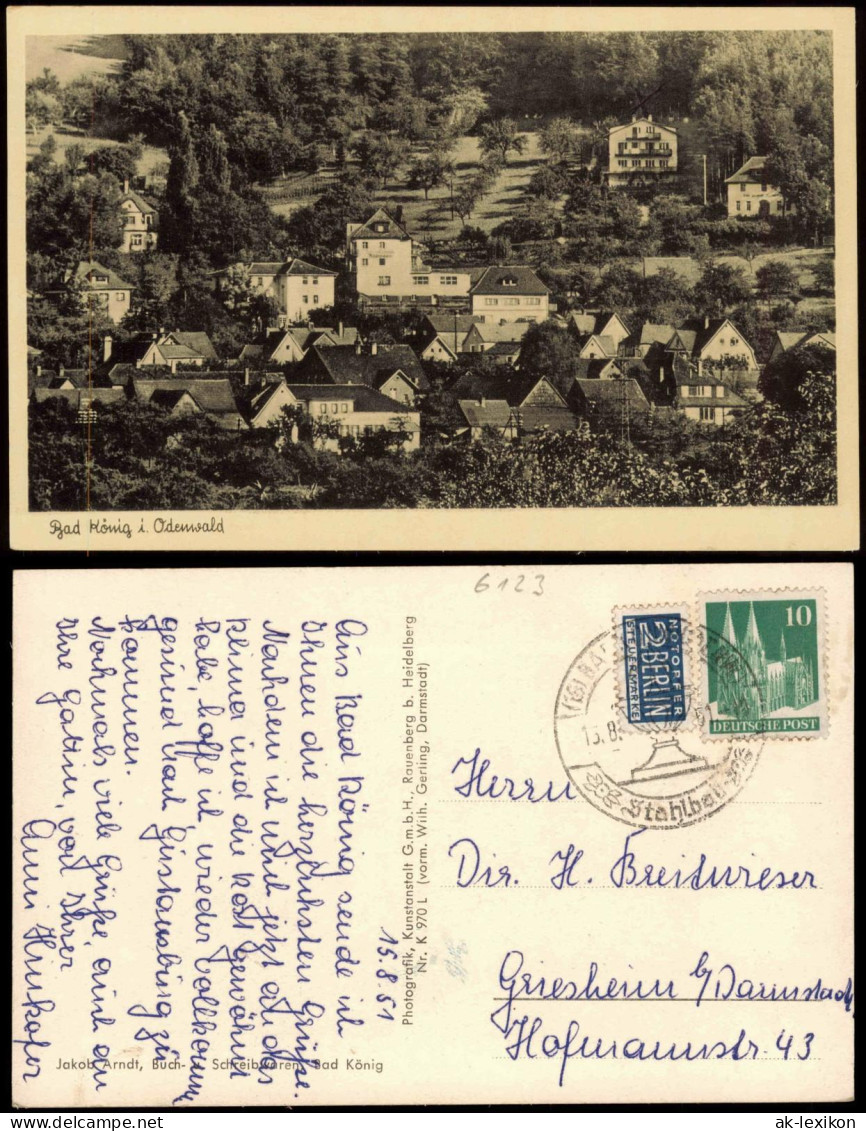 Bad König i. Odenwald
6123
15.8.51
Aus Bad König sende ich
Ihnen die herzlichsten Grüße.
Nachdem ich mich jetzt an das
Klima und die Kost gewöhnt
habe, hoffe ich wieder vollkomm
gesund nach zu
kommen.
Nochmals viele Grüße, auch an
Ihre Gattin, von Ihrer
Anni
Photografik, Kunstanstalt G.m.b.H., Rauenberg b. Heidelberg
Nr. K 970 L (vorm. Wilh. Gerling, Darmstadt)
NOTOPFER
2 BERLIN
STEUERMARKE
10
DEUTSCHE POST
(16) BAD
15.8.
Stahlbad
Herrn
Dir. H. Breitwieser
Griesheim b/Darmstadt
Hofmannstr. 43
Jakob Arndt, Buch- u. Schreibwaren, Bad König
ak-lexikon